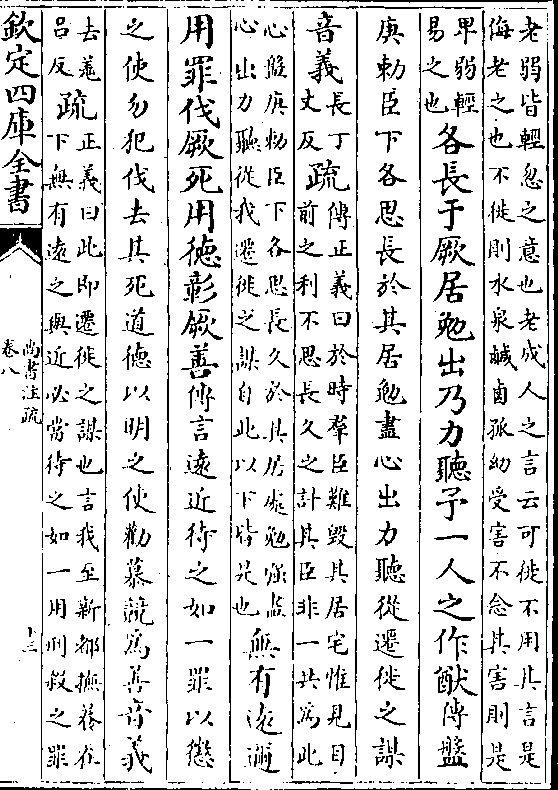 老弱皆輕忽之意也老成人之言云可徙不用其言是
侮老之也不徙則水泉鹹鹵孤幼受害不念其害則是
卑弱輕
易之也
各長于厥居勉出乃力聽予一人之作猷傳盤
庚勅臣下各思長於其居勉盡心出力聽從遷徙之謀
音義
長丁
丈反
疏
傳正義曰於時羣臣難毀其居宅惟見目
前之利不思長久之計其臣非一共為此
心盤庚勅臣下各思長久於其居處勉强盡
心出力聽從我遷徙之謀自此以下皆是也
無有遠邇
用罪伐厥死用德彰厥善傳言遠近待之如一罪以懲
之使勿犯伐去其死道德以明之使勸慕競為善音義
去羌
呂反
疏
正義曰此即遷徙之謀也言我至新都撫養在
下無有遠之與近必當待之如一用刑殺之罪
欽定四庫全書
尚書注疏
卷八
十三